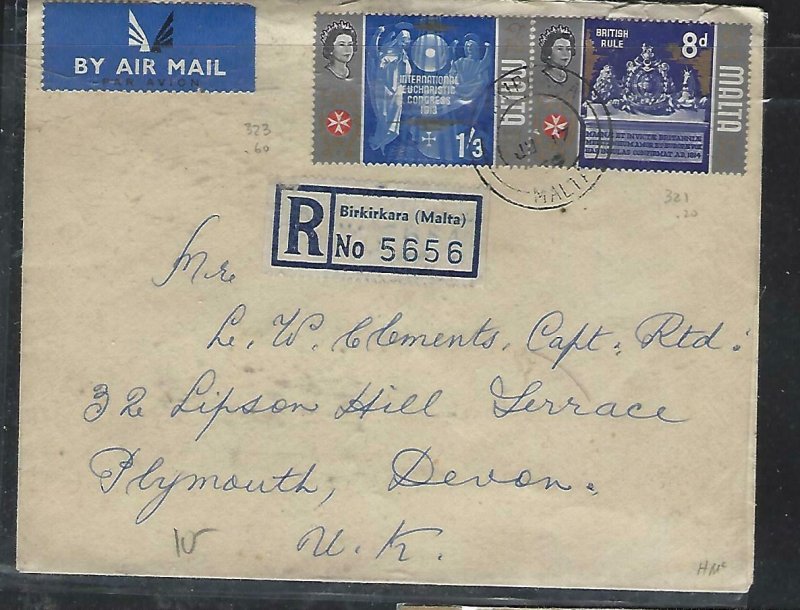 BY AIR MAIL
PAR AVION
INTERNATIONAL
EUCHARISTIC
CONGRESS
1913
1/3
MALTA
BRITISH
RULE
8d
MALTA
MALTA
323
.60
321
.20
R
Birkirkara (Malta)
No 5656
Mr.
L. W. Clements, Capt. Rtd.
32 Lipson Hill Terrace
Plymouth, Devon.
U.K.